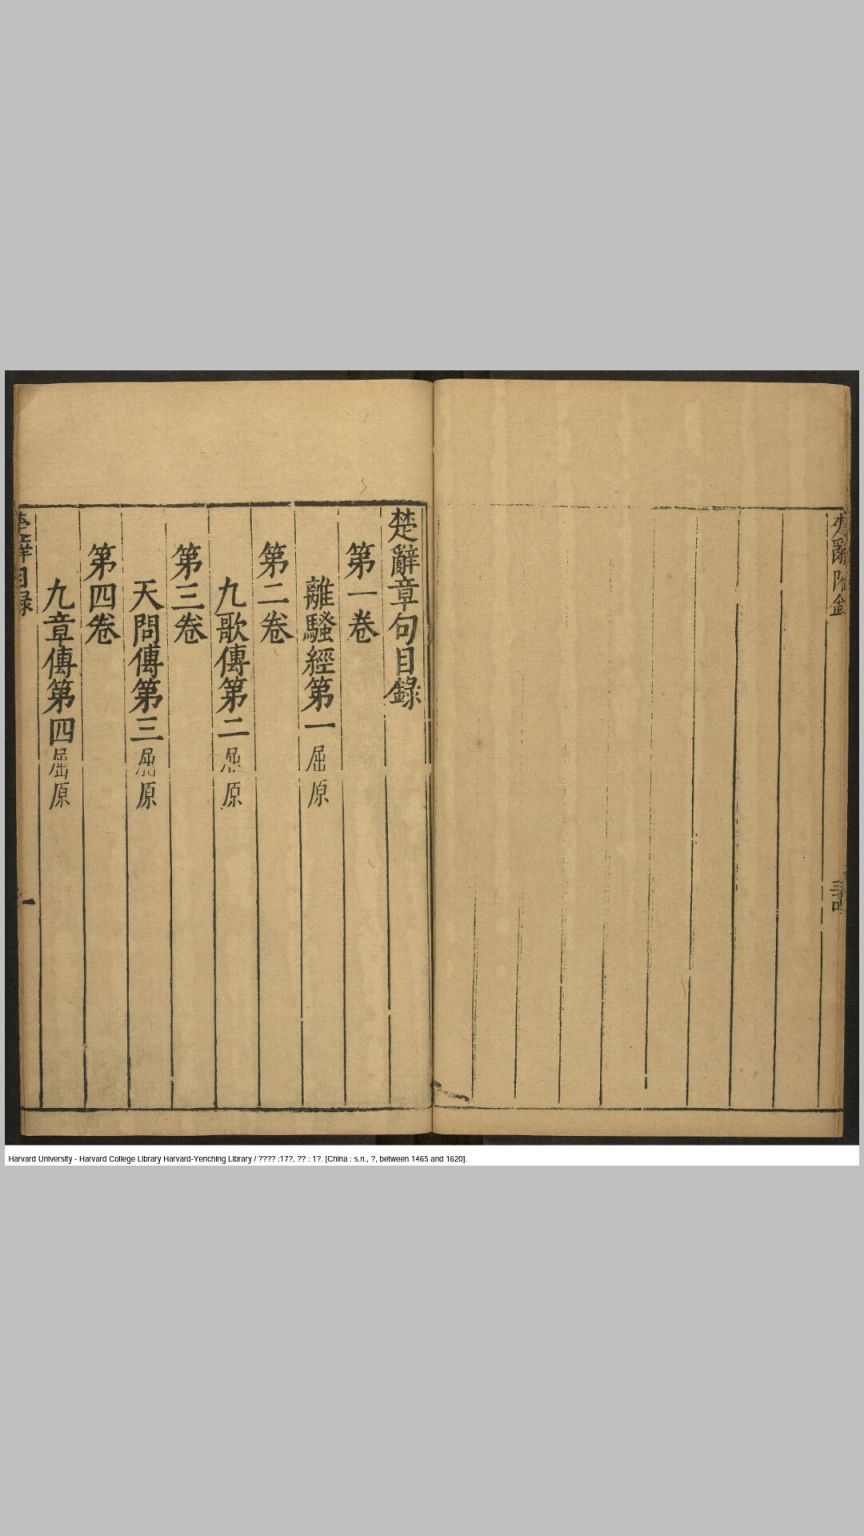 楚辭附錄
楚辭章句目錄
第一卷
離騷經第一屈原
第二卷
九歌傳第二屈原
第三卷
天問傳第三屈原
第四卷
九章傳第四屈原
楚辭目錄
一
Harvard University - Harvard College Library Harvard-Yenching Library / ???? :17?, ?? : 1?. [China : s.n., ?, between 1465 and 1620].